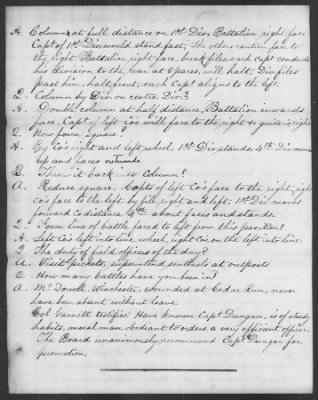 A. Column at full distance on 1st Div. Battalion right face
Capt of 1st Div. would stand fast, the others caution face to
the right Battalion right face, break files, each Capt conducts
his division to the rear 4 paces, will halt. Div files
past him, halt, front, each Capt aligns to the left.
Q. Column by Div. on centre Div.?
A. Double column at half distance, Battalion inwards
face, Capt. of left Co's will face to the right & guide is right
Q. Now form square?
A. By Co's right and left wheel. 1st Div. stands, 4th Div moves
up and faces
Q. Throw it back into column?
A. Reduce square. Capts of left Co's face to the right, right
co's face to the left by file right and left, 1st Div moves
forward Co distance 4th about faces and stands.
Q. Form line of battle faced to left from this position?
A. Left Co's left into line wheel, right Co's, on the left into line.
Q. The duty of field officers of the day?
A. Visit pickets, superintend sentinels at outposts
Q. How many battles have you been in?
A. McDowell, Winchester, wounded at Cedar Run, never
have been absent without leave
Col Garnett testifies: Have known Capt Dungan, is of steady
habits, moral man, obediant to orders, a very efficient officer.
The Board unanimously recommend Capt Dungan for
promotion.